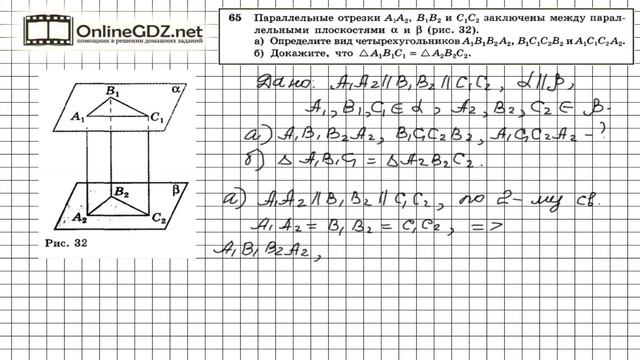 OnlineGDZ.net
помощник в решении домашних заданий
65 Параллельные отрезки A₁A₂, B₁B₂ и C₁C₂ заключены между парал-
лельными плоскостями α и β (рис. 32).
а) Определите вид четырехугольников A₁B₁B₂A₂, B₁C₁C₂B₂ и A₁C₁C₂A₂.
б) Докажите, что △A₁B₁C₁ = △A₂B₂C₂.
B₁ α
A₁ C₁
B₂ β
A₂ C₂
Рис. 32
Дано: A₁A₂ || B₁B₂ || C₁C₂, α || β,
A₁, B₁, C₁ ∈ α, A₂, B₂, C₂ ∈ β.
а) A₁B₁B₂A₂, B₁C₁C₂B₂, A₁C₁C₂A₂ - ?
б) △ A₁B₁C₁ = △A₂B₂C₂.
а) A₁A₂ || B₁B₂ || C₁C₂, по 2-му св.
A₁A₂ = B₁B₂ = C₁C₂, =>
A₁B₁B₂A₂,